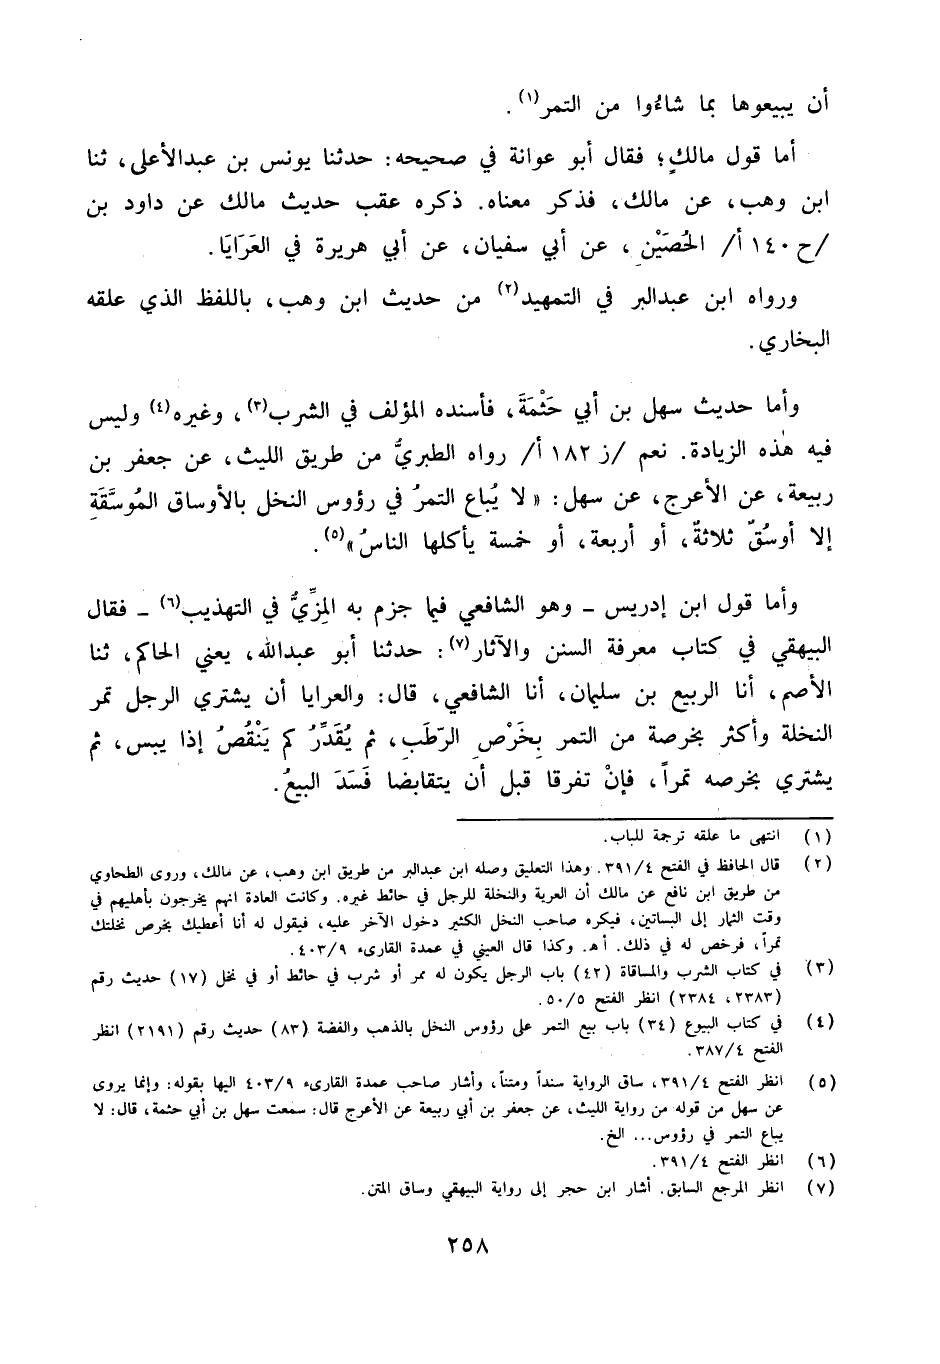 أن يبيعوها بما شاءُوا من التمر(١).
أما قول مالكٍ؛ فقال أبو عوانة في صحيحه: حدثنا يونس بن عبدالأعلى، ثنا
ابن وهب، عن مالك، فذكر معناه. ذكره عقب حديث مالك عن داود بن
/ح ١٤٠ أ/ الحُصَيْنِ، عن أبي سفيان، عن أبي هريرة في العَرَايَا.
ورواه ابن عبدالبر في التمهيد(٢) من حديث ابن وهب، باللفظ الذي علقه
البخاري.
وأما حديث سهل بن أبي حَثْمَةَ، فأسنده المؤلف في الشرب(٣)، وغيره(٤) وليس
فيه هذه الزيادة. نعم /ز ١٨٢ أ/ رواه الطبريُّ من طريق الليث، عن جعفر بن
ربيعة، عن الأعرج، عن سهل: « لا يُباع التمرُ في رؤوس النخل بالأوساق المُوسَّقَةِ
إلا أوسُقٌ ثلاثةٌ، أو أربعة، أو خمسة يأكلها الناسُ»(٥).
وأما قول ابن إدريس ـ وهو الشافعي فيما جزم به المِزِّيُّ في التهذيب(٦) ـ فقال
البيهقي في كتاب معرفة السنن والآثار(٧): حدثنا أبو عبدالله، يعني الحاكم، ثنا
الأصم، أنا الربيع بن سليمان، أنا الشافعي، قال: والعرايا أن يشتري الرجل تمر
النخلة وأكثر بخرصة من التمر بِخَرْصِ الرّطَبِ، ثم يُقَدِّرُ كم يَنْقُصُ إذا يبس، ثم
يشتري بخرصه تمراً، فإنْ تفرقا قبل أن يتقابضا فَسَدَ البيعُ.
(١) انتهى ما علقه ترجمة للباب.
(٢) قال الحافظ في الفتح ٣٩١/٤. وهذا التعليق وصله ابن عبدالبر من طريق ابن وهب، عن مالك، وروى الطحاوي
من طريق ابن نافع عن مالك أن العرية والنخلة للرجل في حائط غيره. وكانت العادة انهم يخرجون بأهليهم في
وقت الثمار إلى البساتين، فيكره صاحب النخل الكثير دخول الآخر عليه، فيقول له أنا أعطيك بخرص نخلتك
تمراً، فرخص له في ذلك. أ هـ. وكذا قال العيني في عمدة القارىء ٤٠٣/٩.
(٣) في كتاب الشرب والمساقاة (٤٢) باب الرجل يكون له ممر أو شرب في حائط أو في نخل (١٧) حديث رقم
(٢٣٨٣، ٢٣٨٤) انظر الفتح ٥٠/٥.
(٤) في كتاب البيوع (٣٤) باب بيع التمر على رؤوس النخل بالذهب والفضة (٨٣) حديث رقم (٢١٩١) انظر
الفتح ٣٨٧/٤.
(٥) انظر الفتح ٣٩١/٤، ساق الرواية سنداً ومتناً، وأشار صاحب عمدة القارىء ٤٠٣/٩ اليها بقوله: وإنما يروى
عن سهل من قوله من رواية الليث، عن جعفر بن أبي ربيعة عن الأعرج قال: سمعت سهل بن أبي حثمة، قال: لا
يباع التمر في رؤوس... الخ.
(٦) انظر الفتح ٣٩١/٤.
(٧) انظر المرجع السابق. أشار ابن حجر إلى رواية البيهقي وساق المتن.
٢٥٨